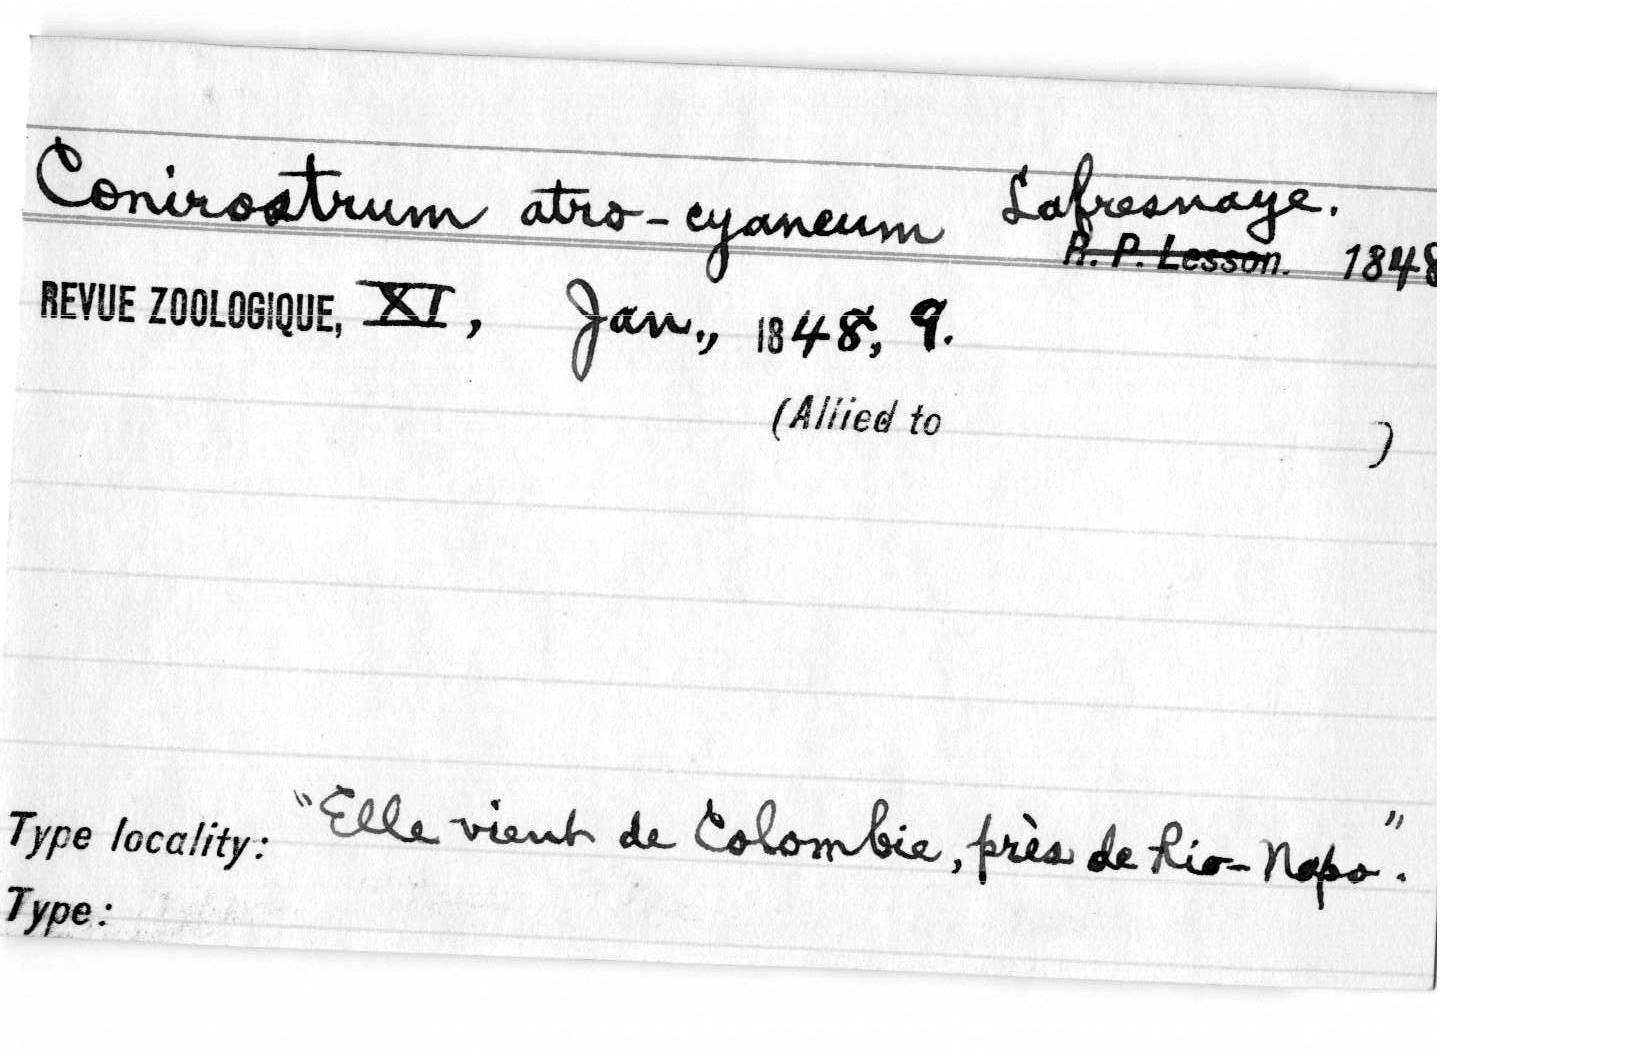 Conirostrum atro-cyaneum Lafresnaye.
R. P. Lesson. 1848
REVUE ZOOLOGIQUE, XI, Jan., 1848, 9.
(Allied to )
Type locality: "Elle vient de Colombie, près de Rio-Napo".
Type: